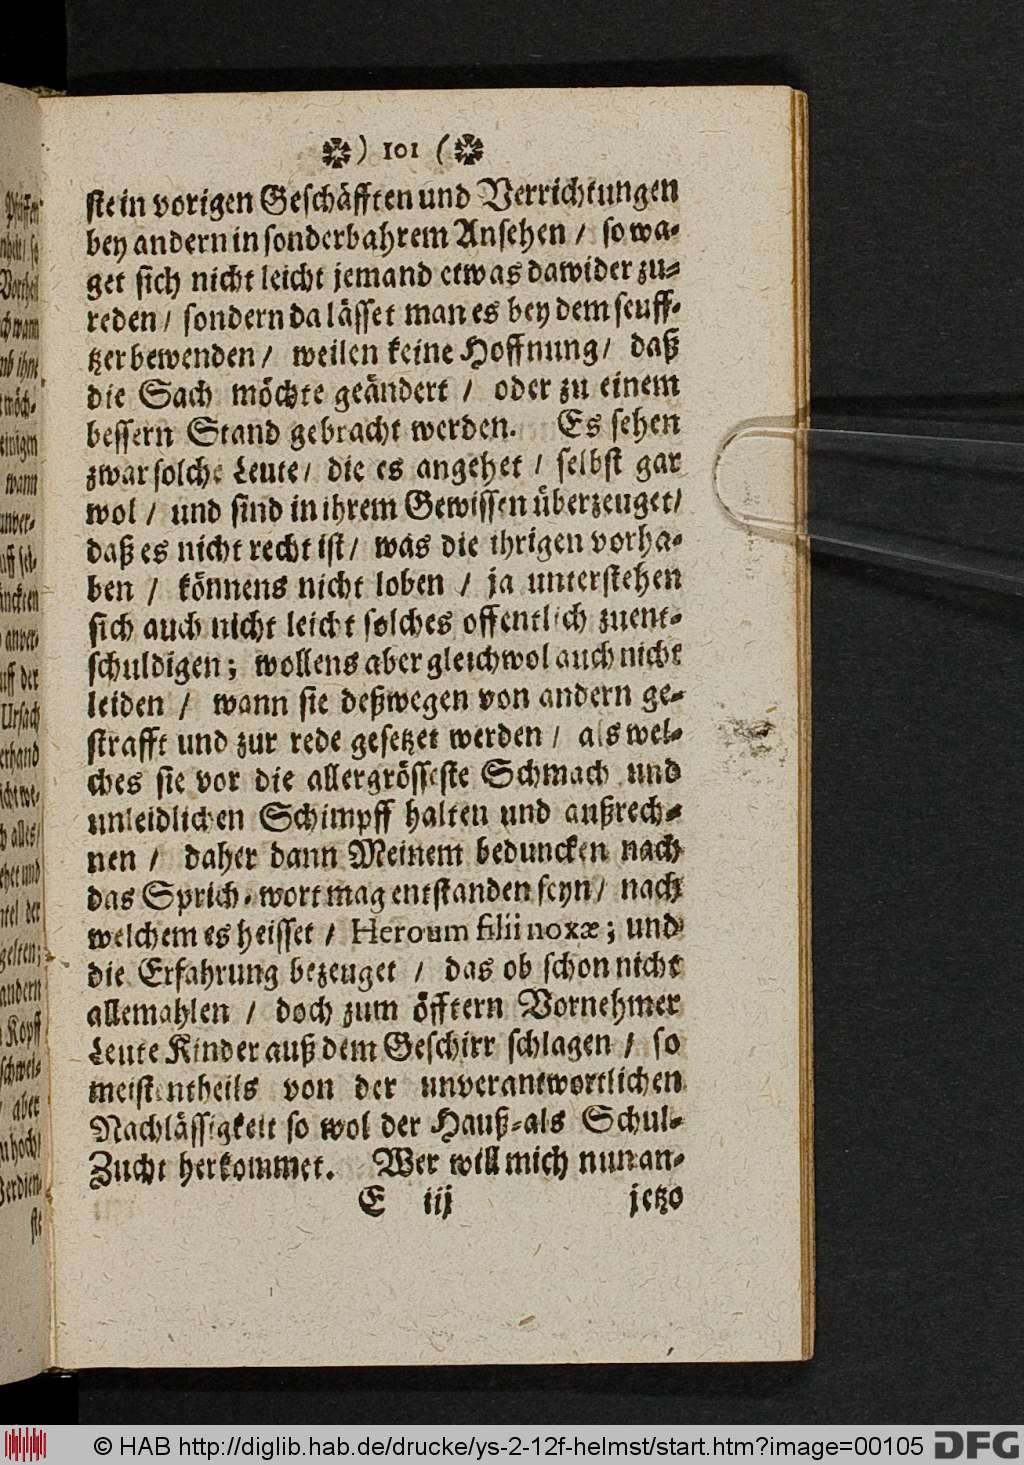 ) 101 (
ste in vorigen Geschäfften und Verrichtungen
bey andern in sonderbahrem Ansehen / so wa-
get sich nicht leicht jemand etwas dawider zu-
reden / sondern da lässet man es bey dem seuff-
tzer bewenden / weilen keine Hoffnung / daß
die Sach möchte geändert / oder zu einem
bessern Stand gebracht werden. Es sehen
zwar solche Leute / die es angehet / selbst gar
wol / und sind in ihrem Gewissen überzeuget /
daß es nicht recht ist / was die ihrigen vorha-
ben / könnens nicht loben / ja unterstehen
sich auch nicht leicht solches offentlich zuent-
schuldigen; wollens aber gleichwol auch nicht
leiden / wann sie deßwegen von andern ge-
strafft und zur rede gesetzet werden / als wel-
ches sie vor die allergrösseste Schmach und
unleidlichen Schimpff halten und außrech-
nen / daher dann Meinem beduncken nach
das Sprich-wort mag entstanden seyn / nach
welchem es heisset / Heroum filii noxæ; und
die Erfahrung bezeuget / das ob schon nicht
allemahlen / doch zum öfftern Vornehmer
Leute Kinder auß dem Geschirr schlagen / so
meistentheils von der unverantwortlichen
Nachlässigkeit so wol der Hauß-als Schul-
Zucht herkommet. Wer will mich nun an-
E iij jetzo
© HAB http://diglib.hab.de/drucke/ys-2-12f-helmst/start.htm?image=00105 DFG